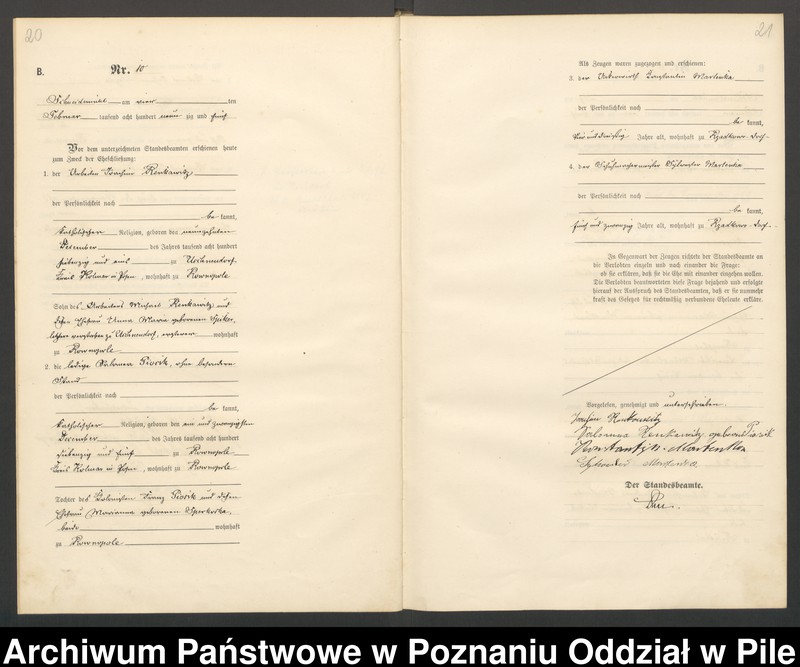 20
B.
Nr. 10
Schneidemühl am vier ten
Februar tausend acht hundert neun zig und fünf
Vor dem unterzeichneten Standesbeamten erschienen heute
zum Zweck der Eheschließung:
1. der Arbeiter Joachim Renkawitz
der Persönlichkeit nach
be kannt,
katholischer Religion, geboren den neunzehnten
Dezember des Jahres tausend acht hundert
siebenzig und eins zu
Kreis Kolmar in Posen, wohnhaft zu Rownopole
Sohn des Arbeiters Michael Renkawitz und
Anna Maria geborenen
wohnhaft
zu Rownopole
2. die ledige Salomea Piosik, ohne besonderen
Stand
der Persönlichkeit nach
be kannt,
katholischer Religion, geboren den ein und zwanzigsten
Dezember des Jahres tausend acht hundert
siebenzig und fünf zu Rownopole
Kreis Kolmar in Posen, wohnhaft zu Rownopole
Tochter des Franz Piosik und dessen
Ehefrau Marianna geborenen
beide wohnhaft
zu Rownopole
21
Als Zeugen waren zugezogen und erschienen:
3. der Ackerwirth Constantin Martenka
der Persönlichkeit nach
be kannt,
Jahre alt, wohnhaft zu Rzadkowo Dorf
4. der Schuhmachermeister Sylvester Martenka
der Persönlichkeit nach
be kannt,
fünf und zwanzig Jahre alt, wohnhaft zu Rzadkowo Dorf
In Gegenwart der Zeugen richtete der Standesbeamte an
die Verlobten einzeln und nach einander die Frage:
ob sie erklären, daß sie die Ehe mit einander eingehen wollen.
Die Verlobten beantworteten diese Frage bejahend und erfolgte
hierauf der Ausspruch des Standesbeamten, daß er sie nunmehr
kraft des Gesetzes für rechtmäßig verbundene Eheleute erkläre.
Vorgelesen, genehmigt und unterschrieben
Joachim Renkawitz
Salomea Renkawitz geborene Piosik
Konstantyn Martenka
Sylwester Martenka
Der Standesbeamte.
Archiwum Państwowe w Poznaniu Oddział w Pile